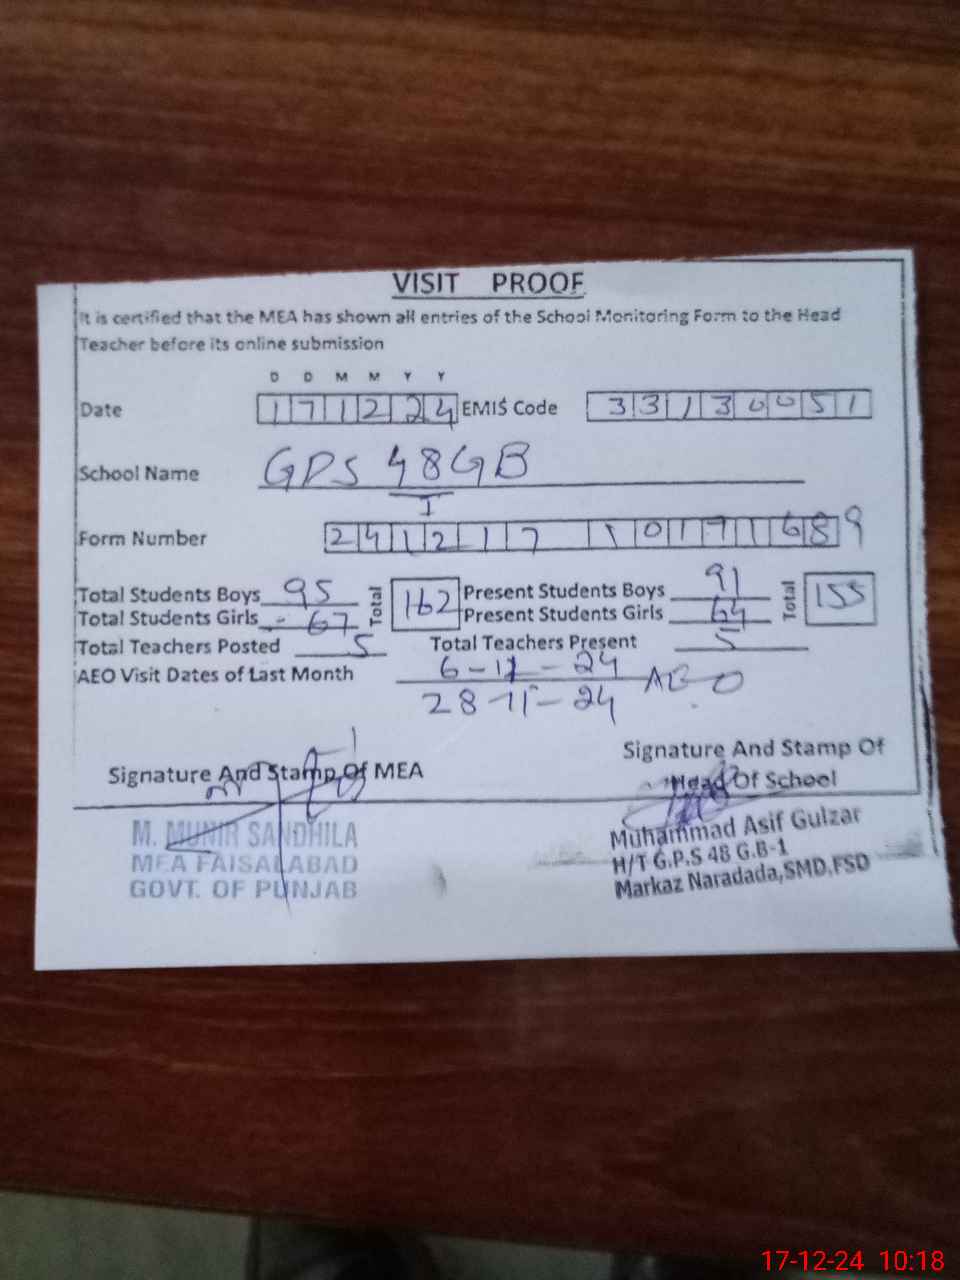 VISIT PROOF
It is certified that the MEA has shown all entries of the School Monitoring Form to the Head
Teacher before its online submission
D D M M Y Y
Date 171224 EMIS Code 33130051
School Name GPS 48 GB
I
Form Number 241217 10171689
Total Students Boys 95 Total 162 Present Students Boys 91 Total 155
Total Students Girls 67 Present Students Girls 64
Total Teachers Posted 5 Total Teachers Present 5
AEO Visit Dates of Last Month 6-11-24 AEO
28-11-24
Signature And Stamp Of MEA
Signature And Stamp Of
Head Of School
M. MUNIR SANDHILA
MEA FAISALABAD
GOVT. OF PUNJAB
Muhammad Asif Gulzar
H/T G.P.S 48 G.B-1
Markaz Naradada,SMD,FSD
17-12-24 10:18